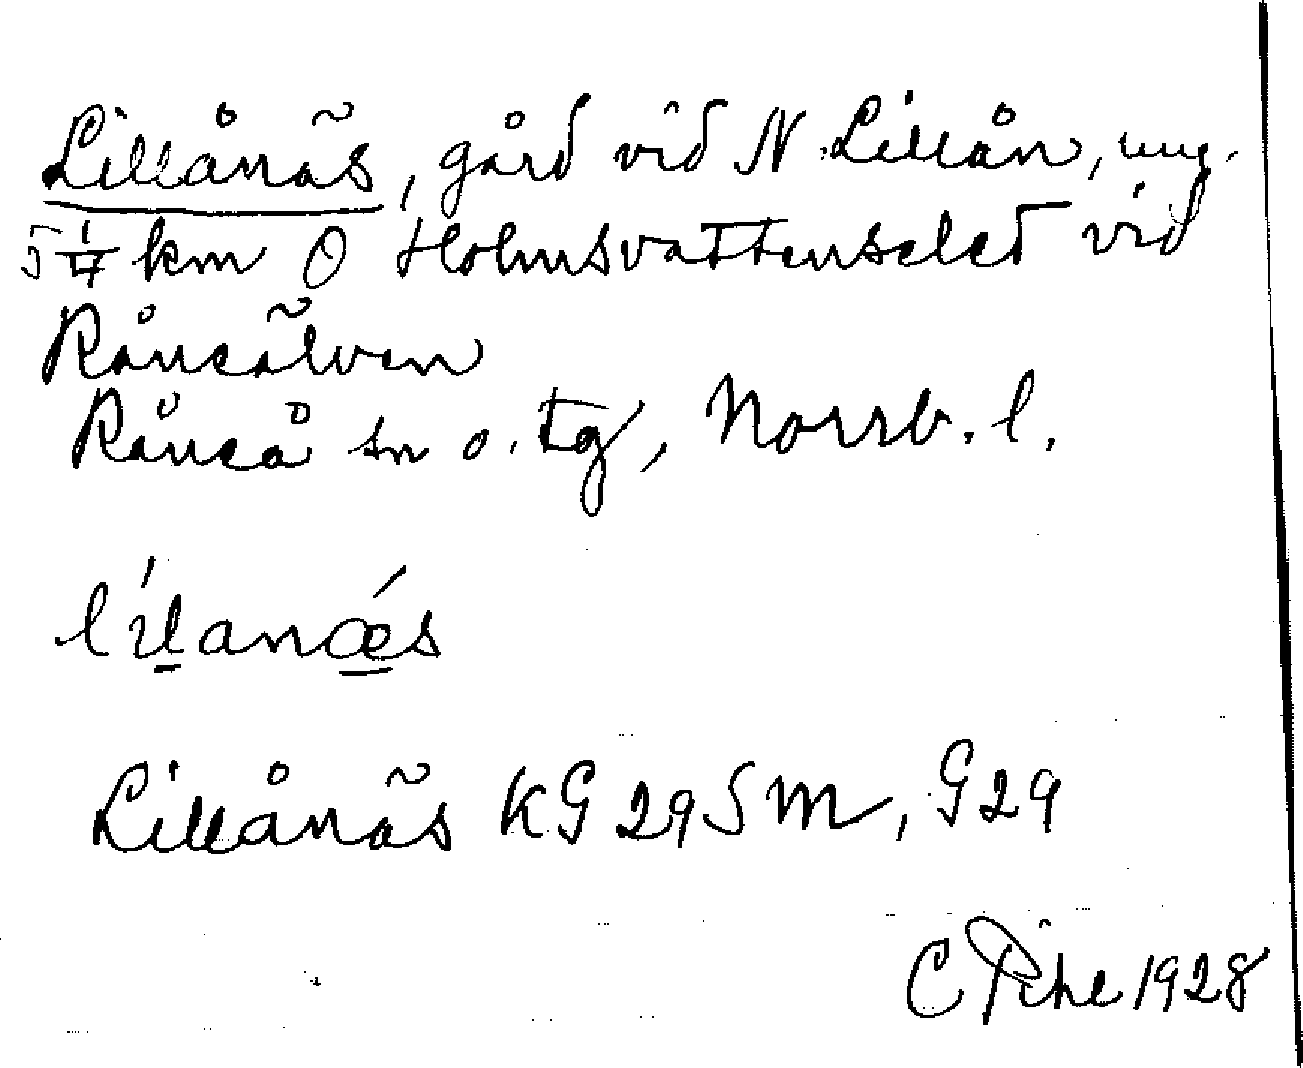 Lillånäs, gård vid N. Lillån, ung.
5 1/4 km O Holmsvattenselet vid
Råneälven
Råneå sn o. tg, Norrb. l.
líl̲anǽ̲s
Lillånäs KG 29 S M, G 29
C Pihl 1928